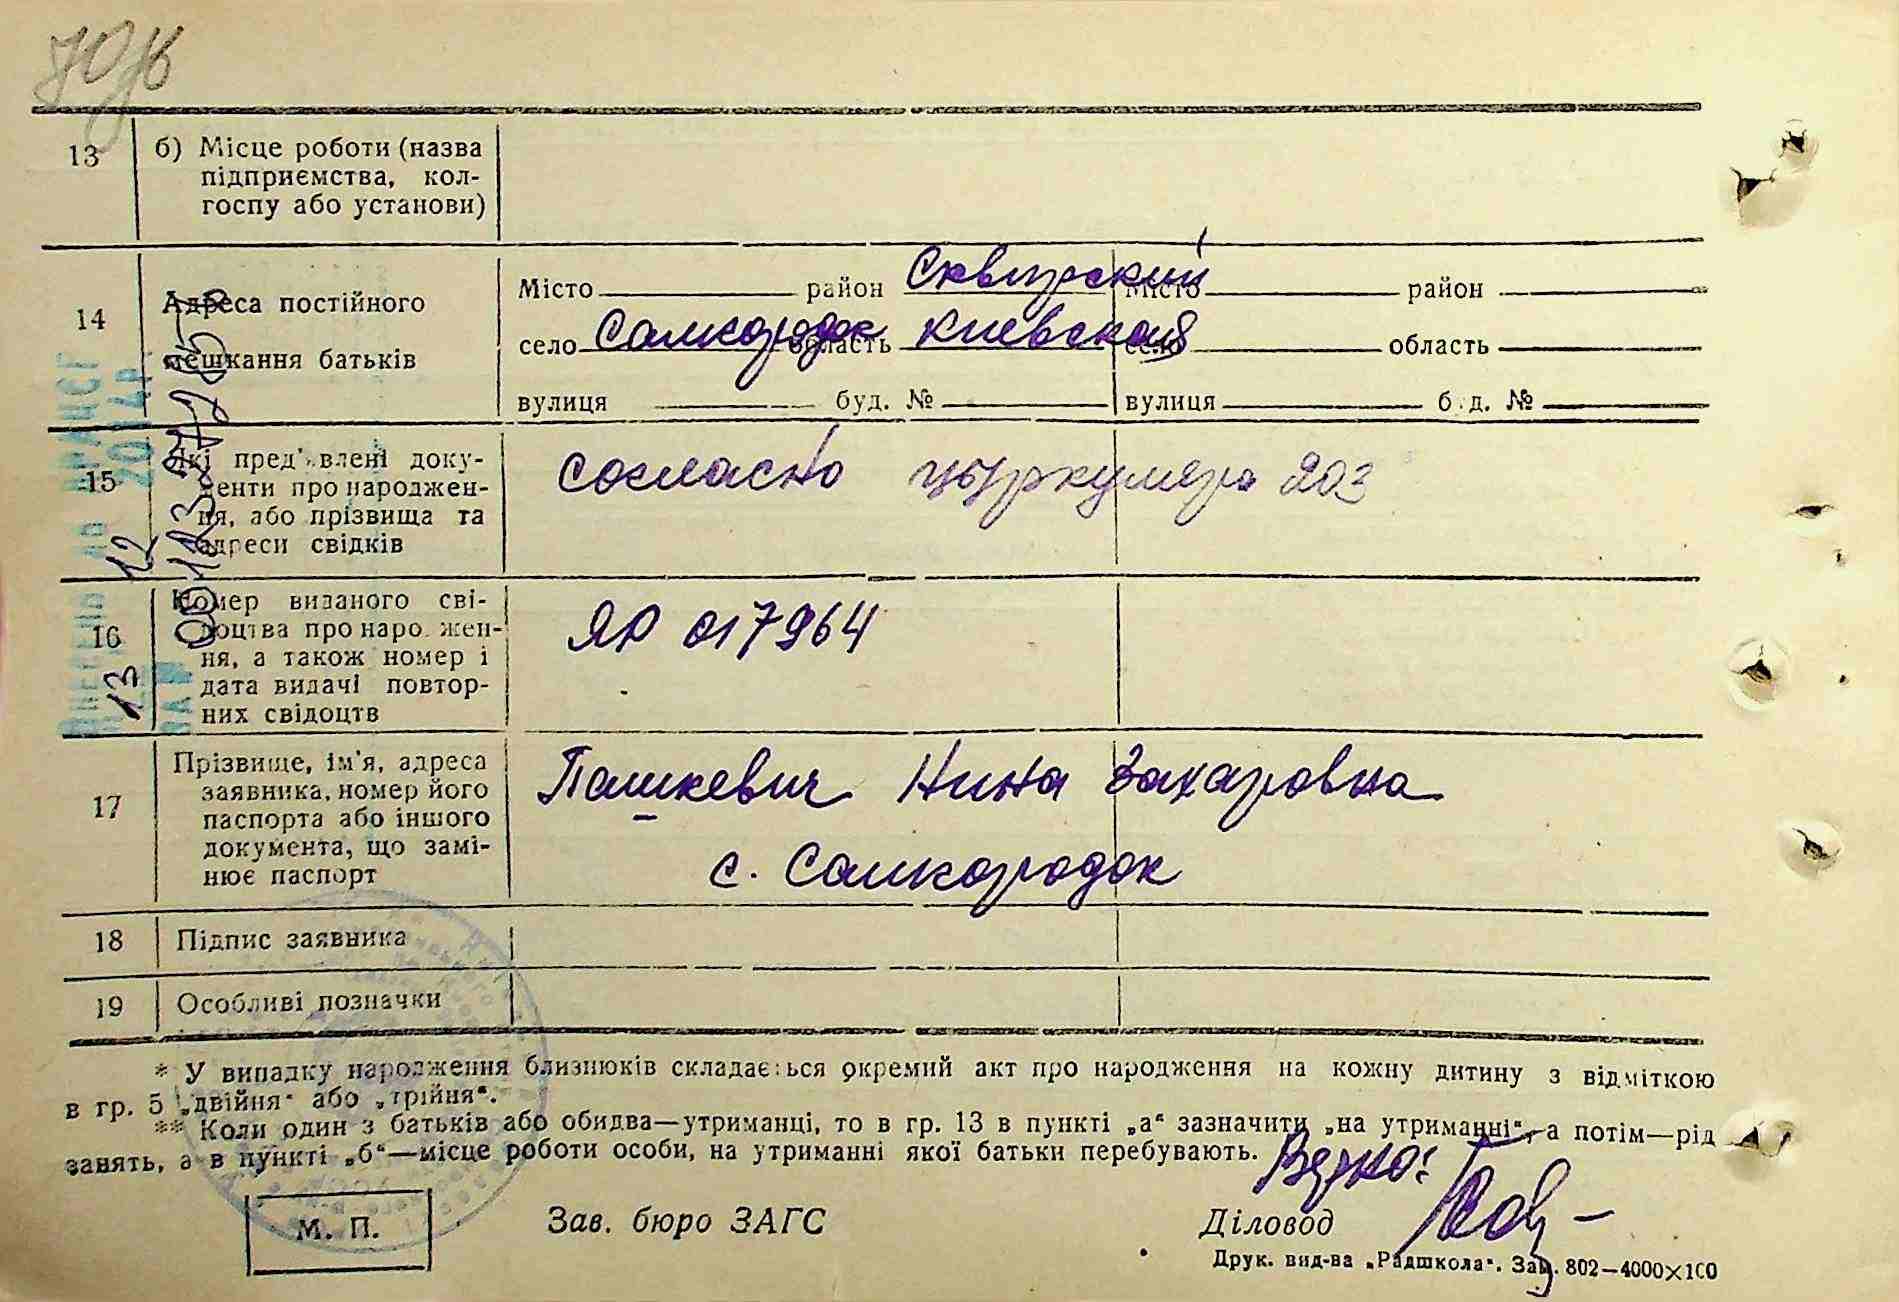 13 б) Місце роботи (назва
підприємства, кол-
госпу або установи)
14 Адреса постійного
мешкання батьків
Місто район Сквирский Місто район
село Самгородок область Киевская село область
вулиця буд. № вулиця б.д. №
15 Які пред'явлені доку-
менти про народжен-
ня, або прізвища та
адреси свідків
согласно цыркуляра 203
16 Номер виданого сві-
доцтва про народжен-
ня, а також номер і
дата видачі повтор-
них свідоцтв
ЯР 017964
17 Прізвище, ім'я, адреса
заявника, номер його
паспорта або іншого
документа, що замі-
нює паспорт
Пашкевич Нина Захаровна
с. Самгородок
18 Підпис заявника
19 Особливі позначки
* У випадку народження близнюків складається окремий акт про народження на кожну дитину з відміткою
в гр. 5 „двійня“ або „трійня“.
** Коли один з батьків або обидва—утриманці, то в гр. 13 в пункті „а“ зазначити „на утриманні“, а потім—рід
занять, а в пункті „б“—місце роботи особи, на утриманні якої батьки перебувають.
М. П.
Зав. бюро ЗАГС
Діловод
Друк. вид-ва „Радшкола“. Зам. 802—4000×100